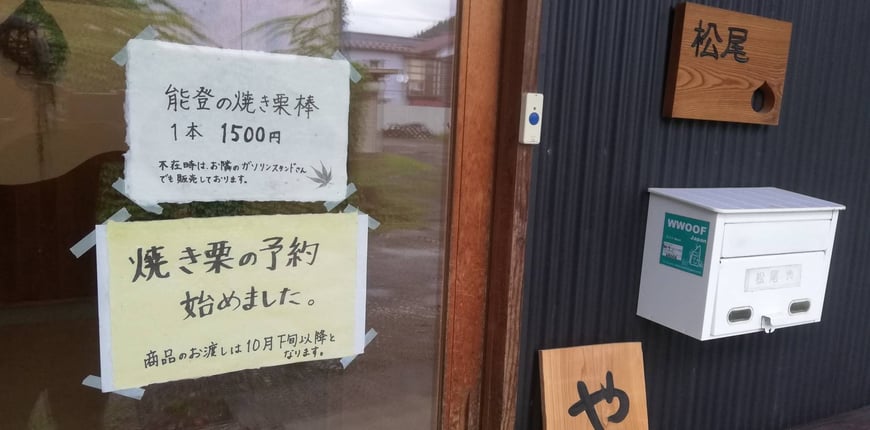 能登の焼き栗棒
1本 1500円
不在時は、お隣のガソリンスタンドさん
でも販売しております。
焼き栗の予約
始めました。
商品のお渡しは10月下旬以降と
なります。
松尾
WWOOF
Japan
松尾や
や